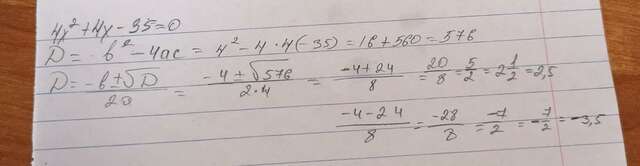 4x²+4x-35=0
D=-b²-4ac=4²-4·4(-35)=16+560=576
D=-b±√D/2a=-4±√576/2·4=-4+24/8=20/8=5/2=2 1/2=2,5
-4-24/8=-28/8=-7/2=-7/2=-3,5